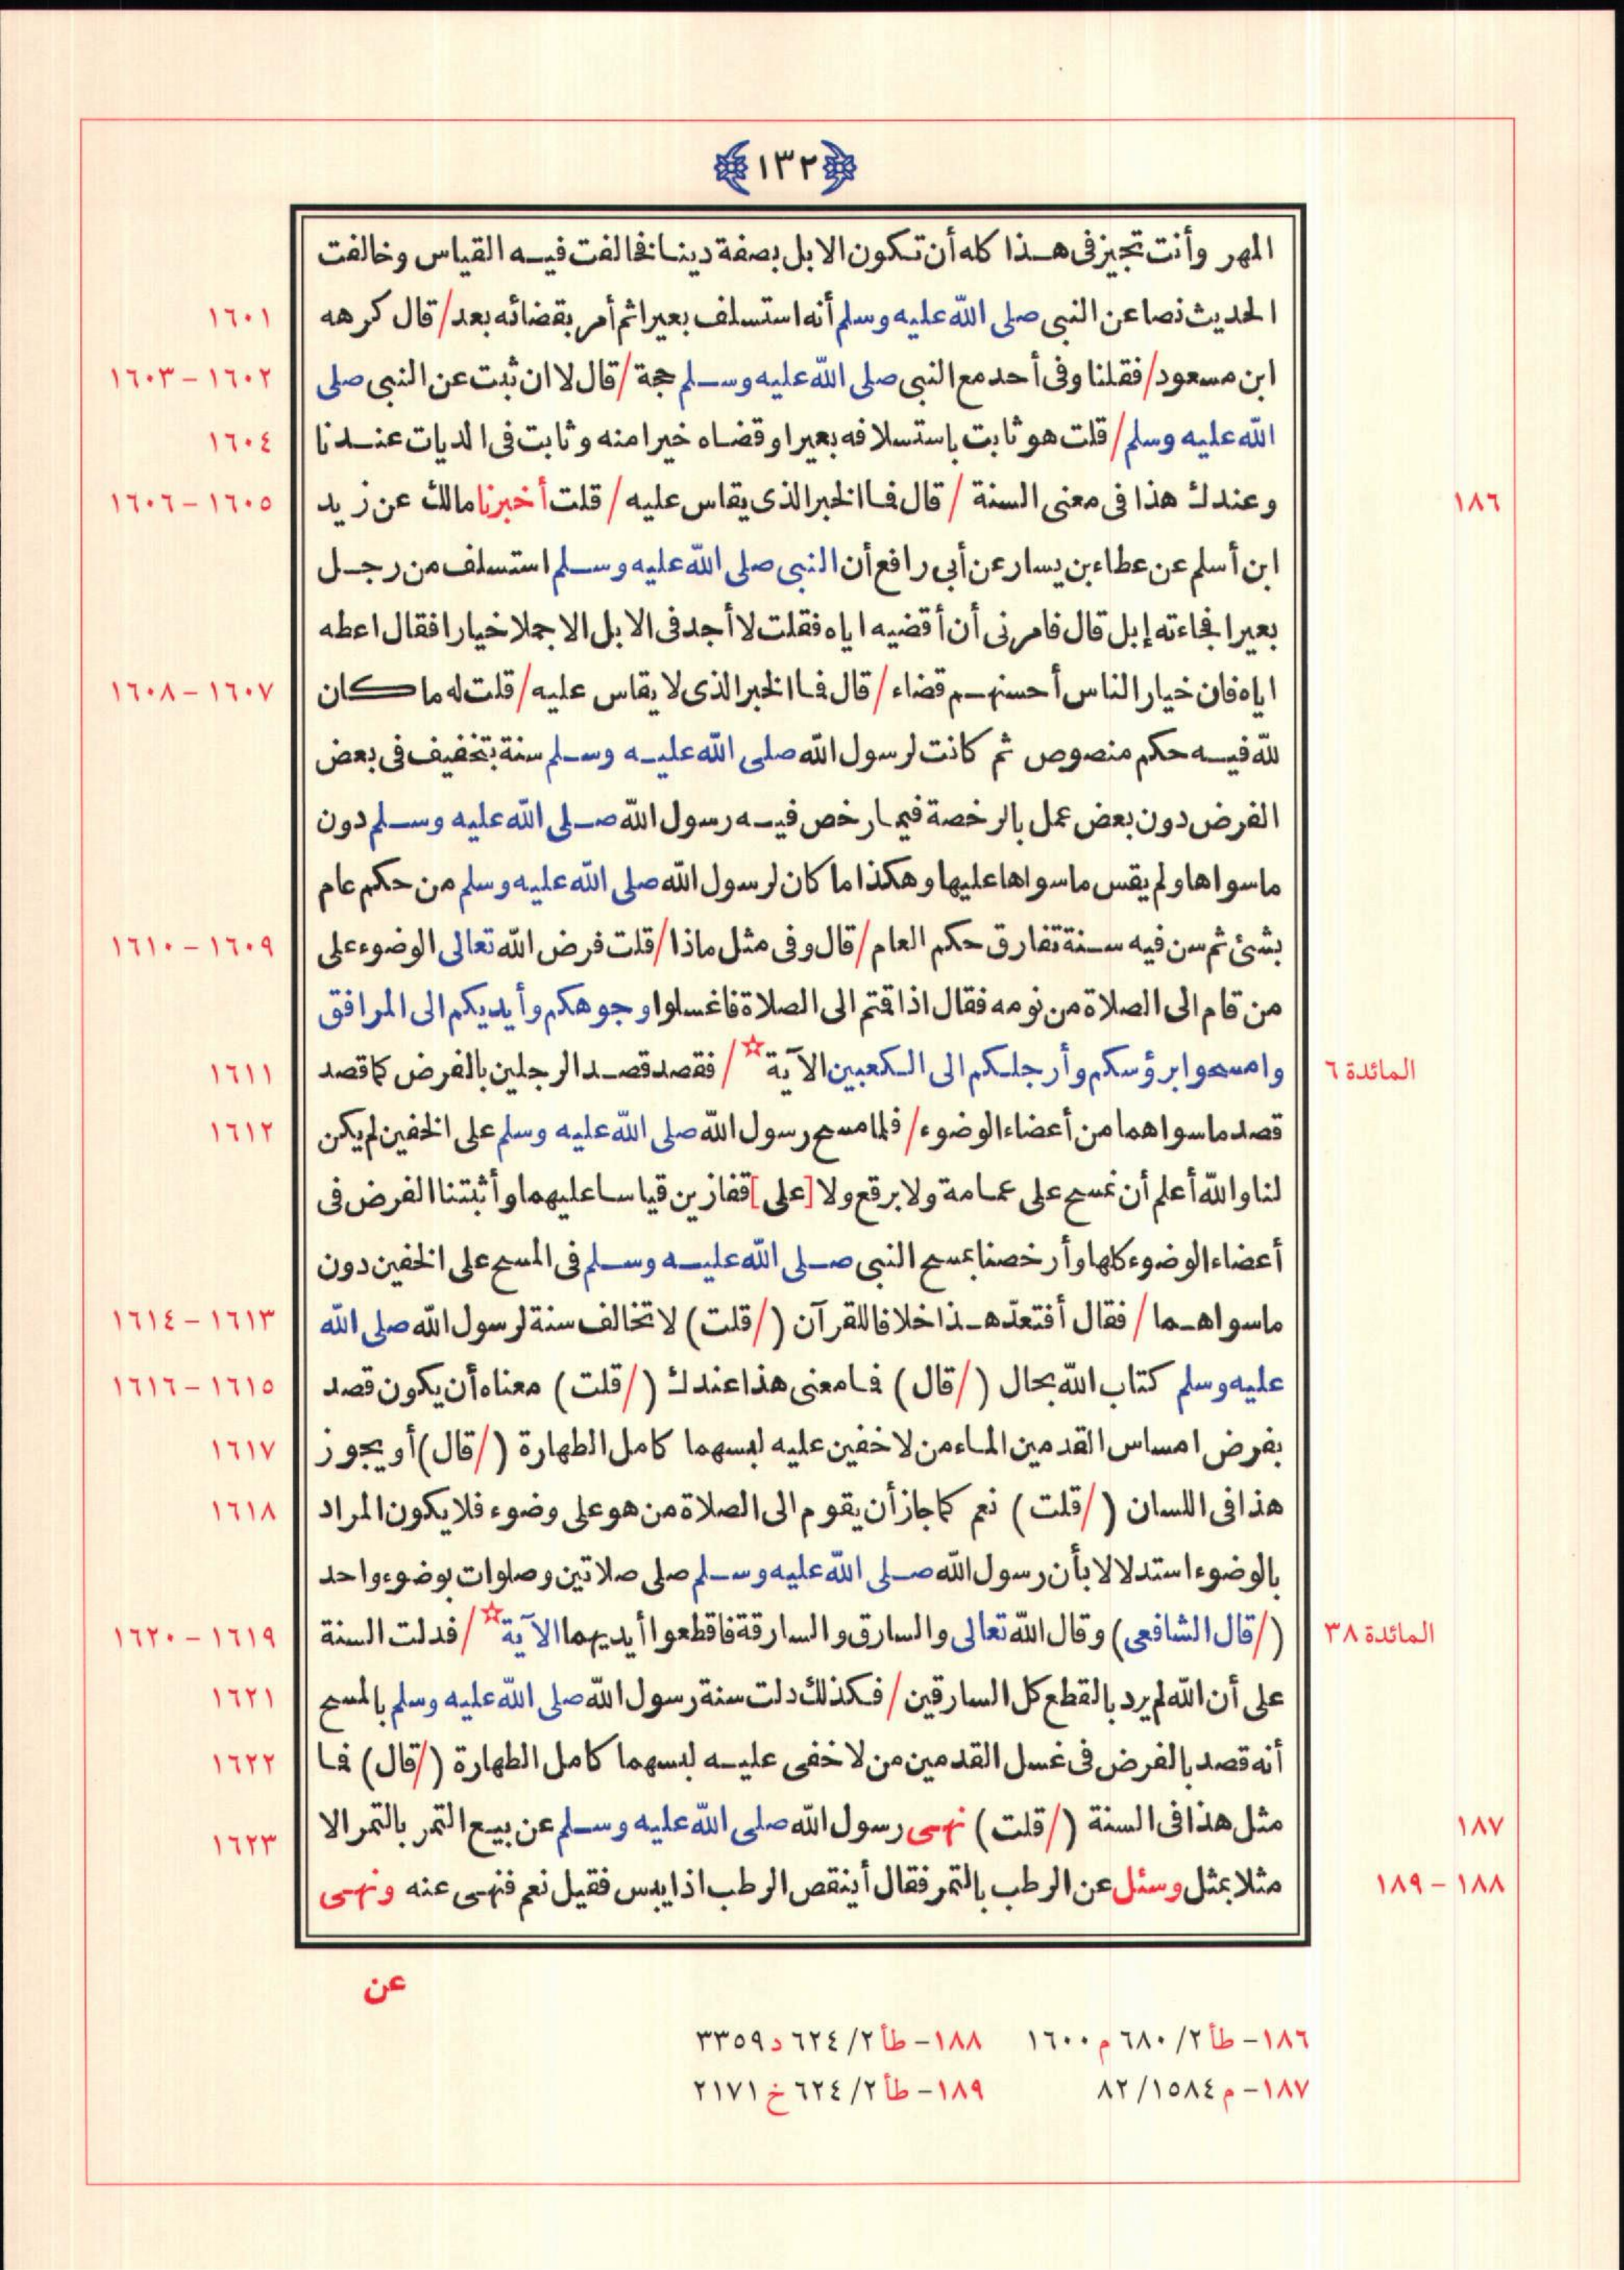 ﴿١٣٢﴾
المهر وأنت تجيز فى هذا كله أن تكون الابل بصفة دينا فخالفت فيه القياس وخالفت
الحديث نصا عن النبى صلى الله عليه وسلم أنه استسلف بعيرا ثم أمر بقضائه بعد / قال كرهه ١٦٠١
ابن مسعود / فقلنا وفى أحد مع النبى صلى الله عليه وسلم حجة / قال لا ان ثبت عن النبى صلى ١٦٠٢ – ١٦٠٣
الله عليه وسلم / قلت هو ثابت باستسلافه بعيرا وقضاه خيرا منه وثابت فى الديات عندنا ١٦٠٤
١٨٦ وعندك هذا فى معنى السنة / قال فما الخبر الذى يقاس عليه / قلت أخبرنا مالك عن زيد ١٦٠٥ – ١٦٠٦
ابن أسلم عن عطاء بن يسار عن أبى رافع أن النبى صلى الله عليه وسلم استسلف من رجل
بعيرا فجاءته إبل قال فامرنى أن أقضيه اياه فقلت لا أجد فى الابل الا جملا خيارا فقال اعطه
اياه فان خيار الناس أحسنهم قضاء / قال فما الخبر الذى لا يقاس عليه / قلت له ما كان ١٦٠٧ – ١٦٠٨
لله فيه حكم منصوص ثم كانت لرسول الله صلى الله عليه وسلم سنة بتخفيف فى بعض
الفرض دون بعض عمل بالرخصة فيما رخص فيه رسول الله صلى الله عليه وسلم دون
ما سواها ولم يقس ما سواها عليها وهكذا ما كان لرسول الله صلى الله عليه وسلم من حكم عام
بشئ ثم سن فيه سنة تفارق حكم العام / قال وفى مثل ماذا / قلت فرض الله تعالى الوضوء على ١٦٠٩ – ١٦١٠
من قام الى الصلاة من نومه فقال اذا قمتم الى الصلاة فاغسلوا وجوهكم وأيديكم الى المرافق
المائدة ٦ وامسحوا برؤسكم وأرجلكم الى الكعبين الآية☆ / فقصد قصد الرجلين بالفرض كما قصد ١٦١١
قصد ما سواهما من أعضاء الوضوء / فلما مسح رسول الله صلى الله عليه وسلم على الخفين لم يكن ١٦١٢
لنا والله أعلم أن نمسح على عمامة ولا برقع ولا [على] قفازين قياسا عليهما وأثبتنا الفرض فى
أعضاء الوضوء كلها وأرخصنا بمسح النبى صلى الله عليه وسلم فى المسح على الخفين دون
ما سواهما / فقال أفتعدّ هذا خلافا للقرآن (/ قلت) لا تخالف سنة لرسول الله صلى الله ١٦١٣ – ١٦١٤
عليه وسلم كتاب الله بحال (/ قال) فما معنى هذا عندك (/ قلت) معناه أن يكون قصد ١٦١٥ – ١٦١٦
بفرض امساس القدمين الماء من لا خفين عليه لبسهما كامل الطهارة (/ قال) أو يجوز ١٦١٧
هذا فى اللسان (/ قلت) نعم كما جاز أن يقوم الى الصلاة من هو على وضوء فلا يكون المراد ١٦١٨
بالوضوء استدلالا بأن رسول الله صلى الله عليه وسلم صلى صلاتين وصلوات بوضوء واحد
المائدة ٣٨ (/ قال الشافعى) وقال الله تعالى والسارق والسارقة فاقطعوا أيديهما الآية☆ / فدلت السنة ١٦١٩ – ١٦٢٠
على أن الله لم يرد بالقطع كل السارقين / فكذلك دلت سنة رسول الله صلى الله عليه وسلم بالمسح ١٦٢١
أنه قصد بالفرض فى غسل القدمين من لا خفى عليه لبسهما كامل الطهارة (/ قال) فما ١٦٢٢
١٨٧ مثل هذا فى السنة (/ قلت) نهى رسول الله صلى الله عليه وسلم عن بيع التمر بالتمر الا ١٦٢٣
١٨٨ – ١٨٩ مثلا بمثل وسئل عن الرطب بالتمر فقال أينقص الرطب اذا يبس فقيل نعم فنهى عنه ونهى
عن
١٨٦ – طأ ٢/ ٦٨٠ م ١٦٠٠ ١٨٨ – طأ ٢/ ٦٢٤ د ٣٣٥٩
١٨٧ – م ١٥٨٤/ ٨٢ ١٨٩ – طأ ٢/ ٦٢٤ خ ٢١٧١